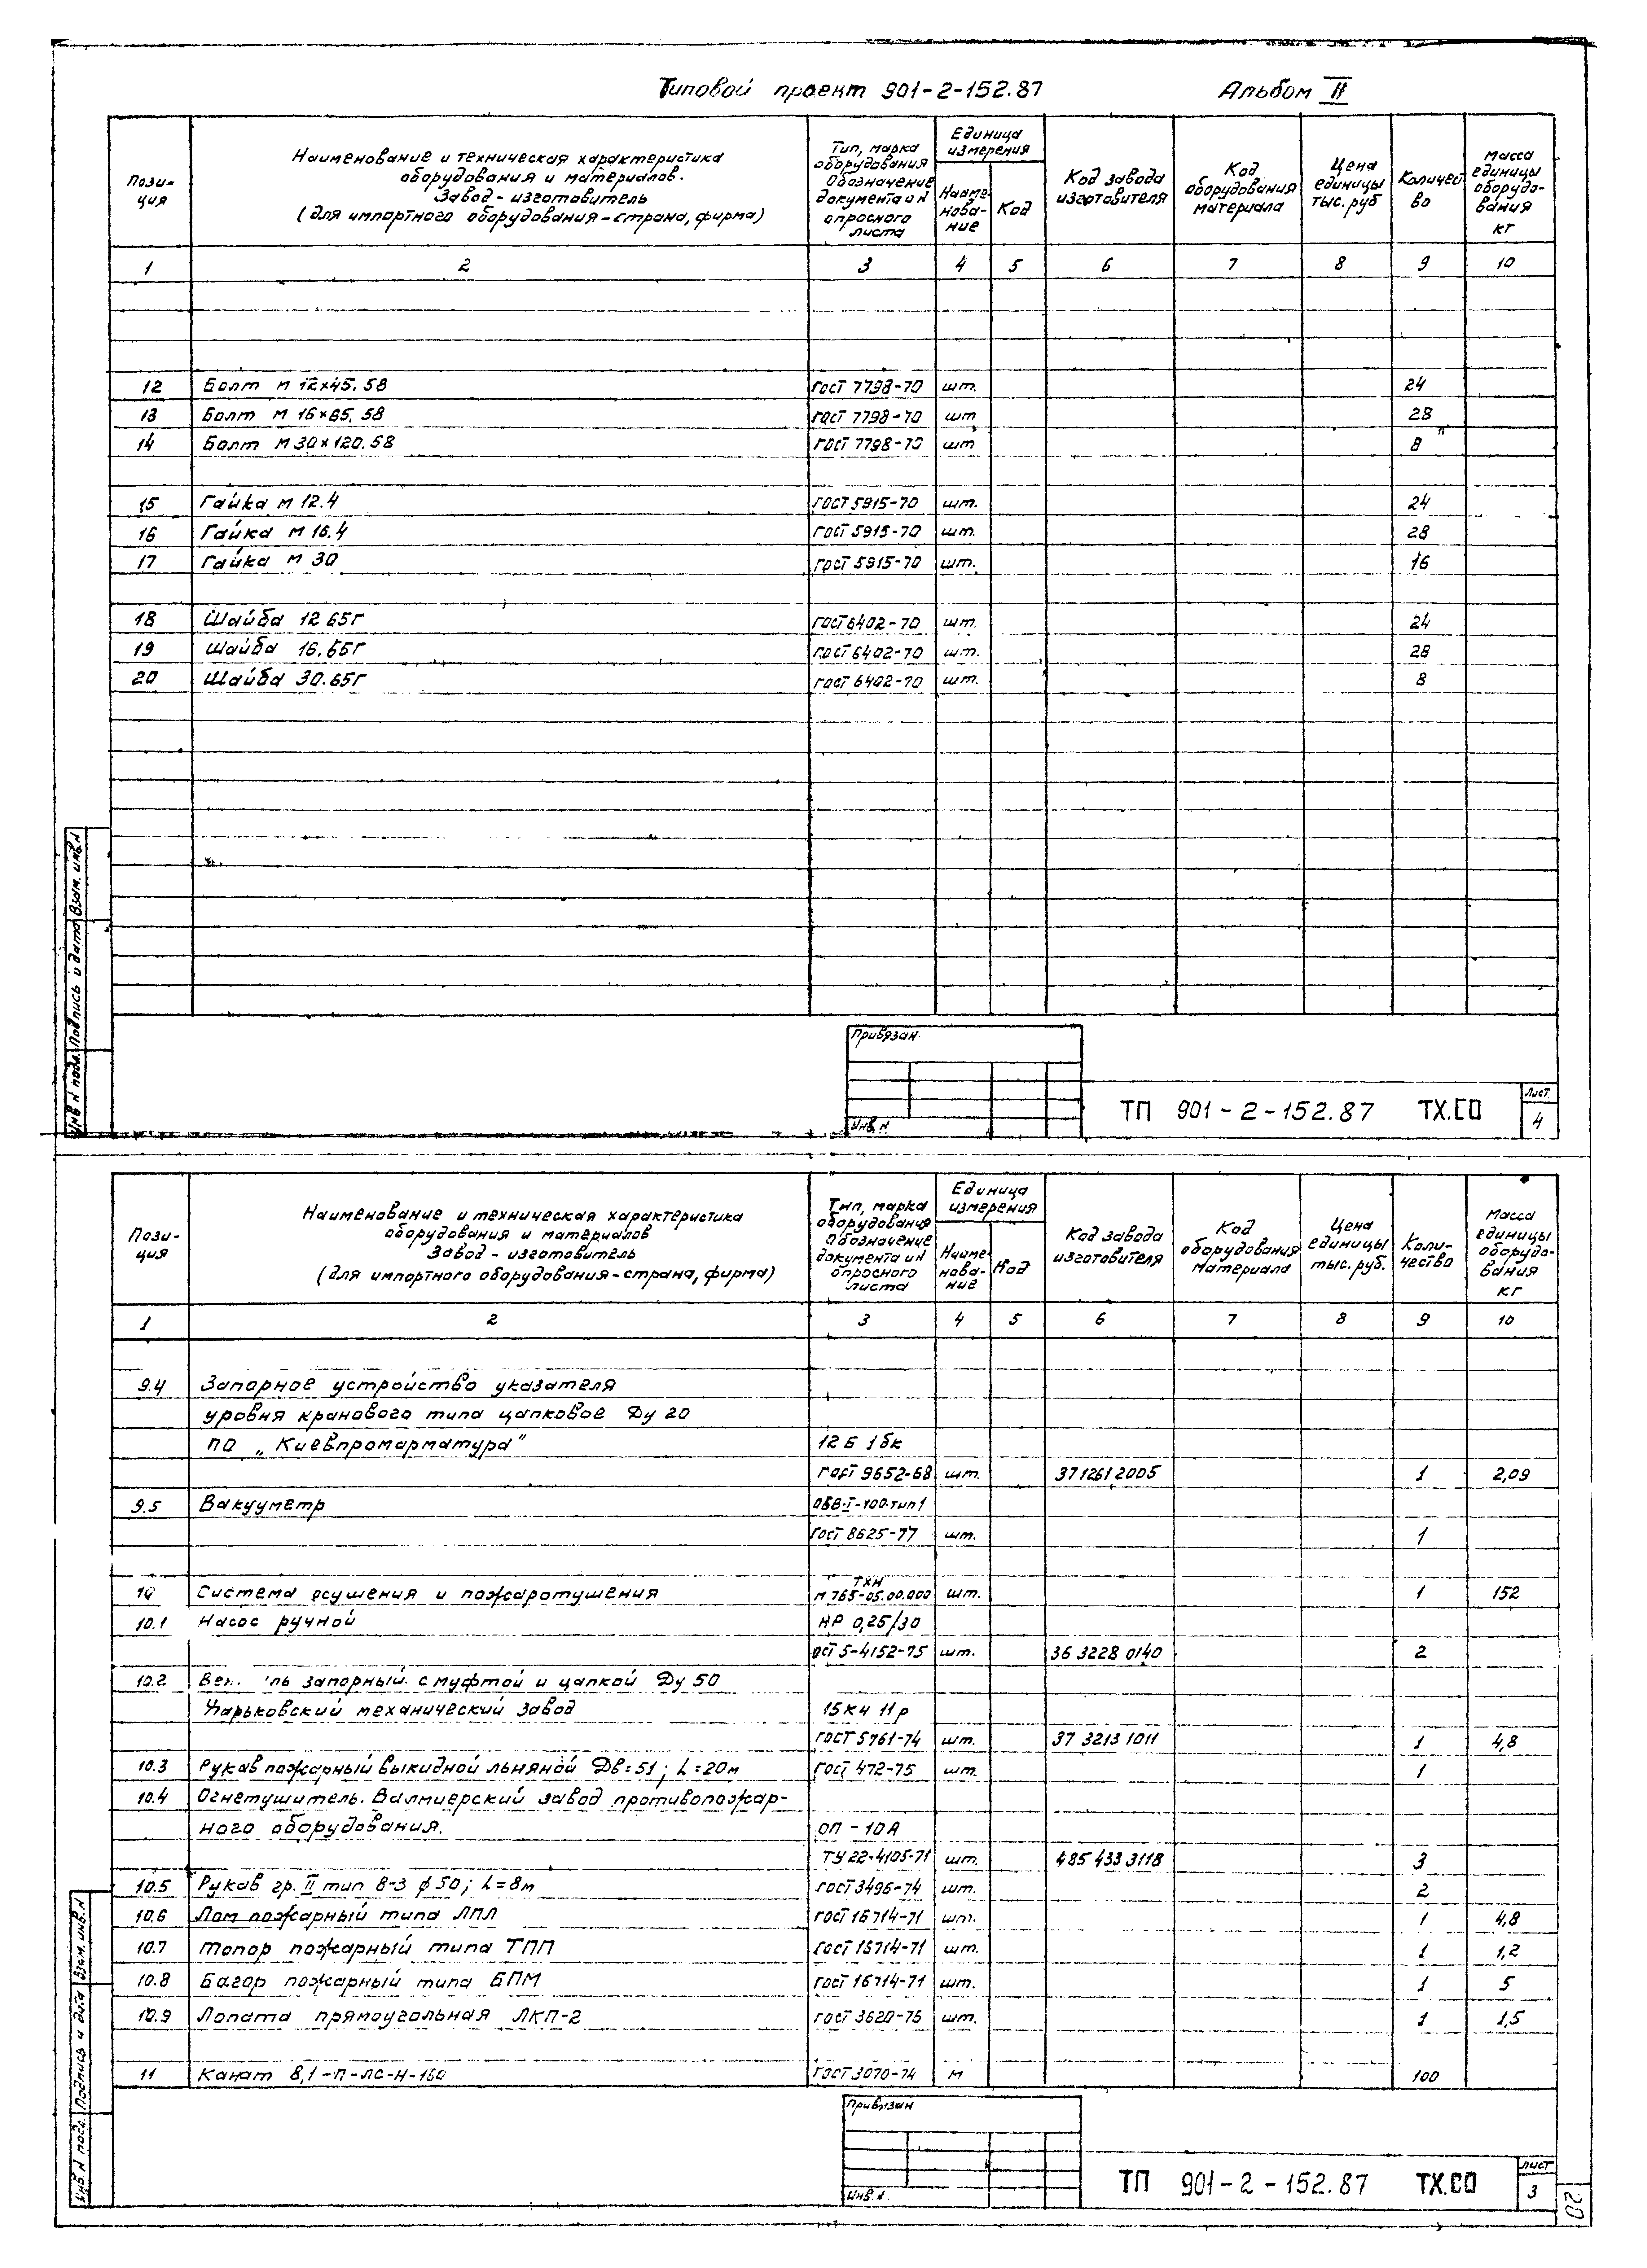 Типовой проект 901-2-152.87 Альбом II
Пози-
ция
Наименование и техническая характеристика
оборудования и материалов.
Завод-изготовитель
(для импортного оборудования-страна, фирма)
Тип, марка
оборудования
Обозначение
документа и N
опросного
листа
Единица
измерения
Наиме-
нова-
ние
Код
Код завода
изготовителя
Код
оборудования
материала
Цена
единицы
тыс. руб
Количест
во
Масса
единицы
оборудо-
вания
кг
1 2 3 4 5 6 7 8 9 10
12 Болт М 12×45.58 ГОСТ 7798-70 шт. 24
13 Болт М 16×65.58 ГОСТ 7798-70 шт 28
14 Болт М 30×120.58 ГОСТ 7798-70 шт 8
15 Гайка М 12.4 ГОСТ 5915-70 шт. 24
16 Гайка М 16.4 ГОСТ 5915-70 шт. 28
17 Гайка М 30 ГОСТ 5915-70 шт. 16
18 Шайба 12 65Г ГОСТ 6402-70 шт. 24
19 Шайба 16.65Г ГОСТ 6402-70 шт. 28
20 Шайба 30.65Г ГОСТ 6402-70 шт. 8
Инв N подл. Подпись и дата Взам. инв. N
Привязан
Инв. N
ТП 901-2-152.87 ТХ.СО
Лист
4
Пози-
ция
Наименование и техническая характеристика
оборудования и материалов
Завод-изготовитель
(для импортного оборудования-страна, фирма)
Тип, марка
оборудования
Обозначение
документа и N
опросного
листа
Единица
измерения
Наиме-
нова-
ние
Код
Код завода
изготовителя
Код
оборудования
материала
Цена
единицы
тыс. руб.
Коли-
чество
Масса
единицы
оборудо-
вания
кг
1 2 3 4 5 6 7 8 9 10
9.4 Запорное устройство указателя
уровня кранового типа цапковое Ду 20
ПО „Киевпромарматура" 12 Б 1 бк
ГОСТ 9652-68 шт. 37 1261 2005 1 2,09
9.5 Вакууметр ОБВ-I-100.тип 1
ГОСТ 8625-77 шт. 1
ТХН
10 Система осушения и пожаротушения М 765-05.00.000 шт. 1 152
10.1 Насос ручной НР 0,25/30
ОСТ 5-4152-75 шт. 36 3228 0140 2
10.2 запорный с муфтой и цапкой Ду 50
Харьковский механический завод 15 кч 11 р
ГОСТ 5761-74 шт. 37 3213 1011 1 4,8
10.3 Рукав пожарный выкидной льняной Дв=51; L=20м ГОСТ 472-75 шт. 1
10.4 Огнетушитель. Валмиерский завод противопожар-
ного оборудования. ОП-10А
ТУ 22-4105-71 шт. 485 433 3118 3
10.5 Рукав гр. II тип 8-3 ϕ50; L=8м ГОСТ 3496-74 шт. 2
10.6 Лом пожарный типа ЛПЛ ГОСТ 16714-71 шт. 1 4,8
10.7 Топор пожарный типа ТПП ГОСТ 16714-71 шт. 1 1,2
10.8 Багор пожарный типа БПМ ГОСТ 16714-71 шт. 1 5
10.9 Лопата прямоугольная ЛКП-2 ГОСТ 3620-76 шт. 1 1,5
11 Канат 8,1-П-ЛС-Н-160 ГОСТ 3070-74 м 100
Инв. N подл. Подпись и дата Взам. инв. N
Привязан
Инв. N.
ТП 901-2-152.87 ТХ.СО
Лист
3
20